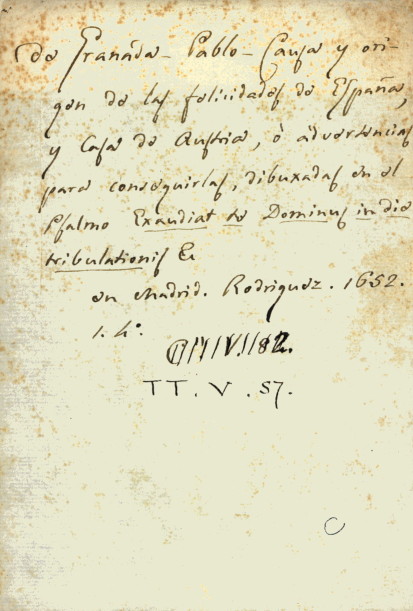 de Granada - Pablo - Causa y ori-
gen de las felicidades de España,
y Casa de Austria, ò advertencias
para conseguirlas, dibuxadas en el
Psalmo Exaudiat te Dominus in die
tribulationis &
en Madrid. Rodriguez. 1652.
1. 4º.
TT. V. 57.
C